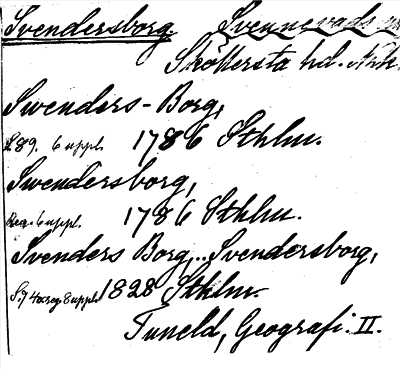 Svendersborg. Svennevads sn
Sköllersta hd. Nrk.
Swenders-Borg,
s. 89. 6 uppl. 1786 Sthlm.
Swendersborg,
Reg. 6 uppl. 1786 Sthlm.
Svenders Borg, .. Svendersborg,
S. 74 o. reg. 8 uppl. 1828 Sthlm.
Tuneld, Geografi. II.